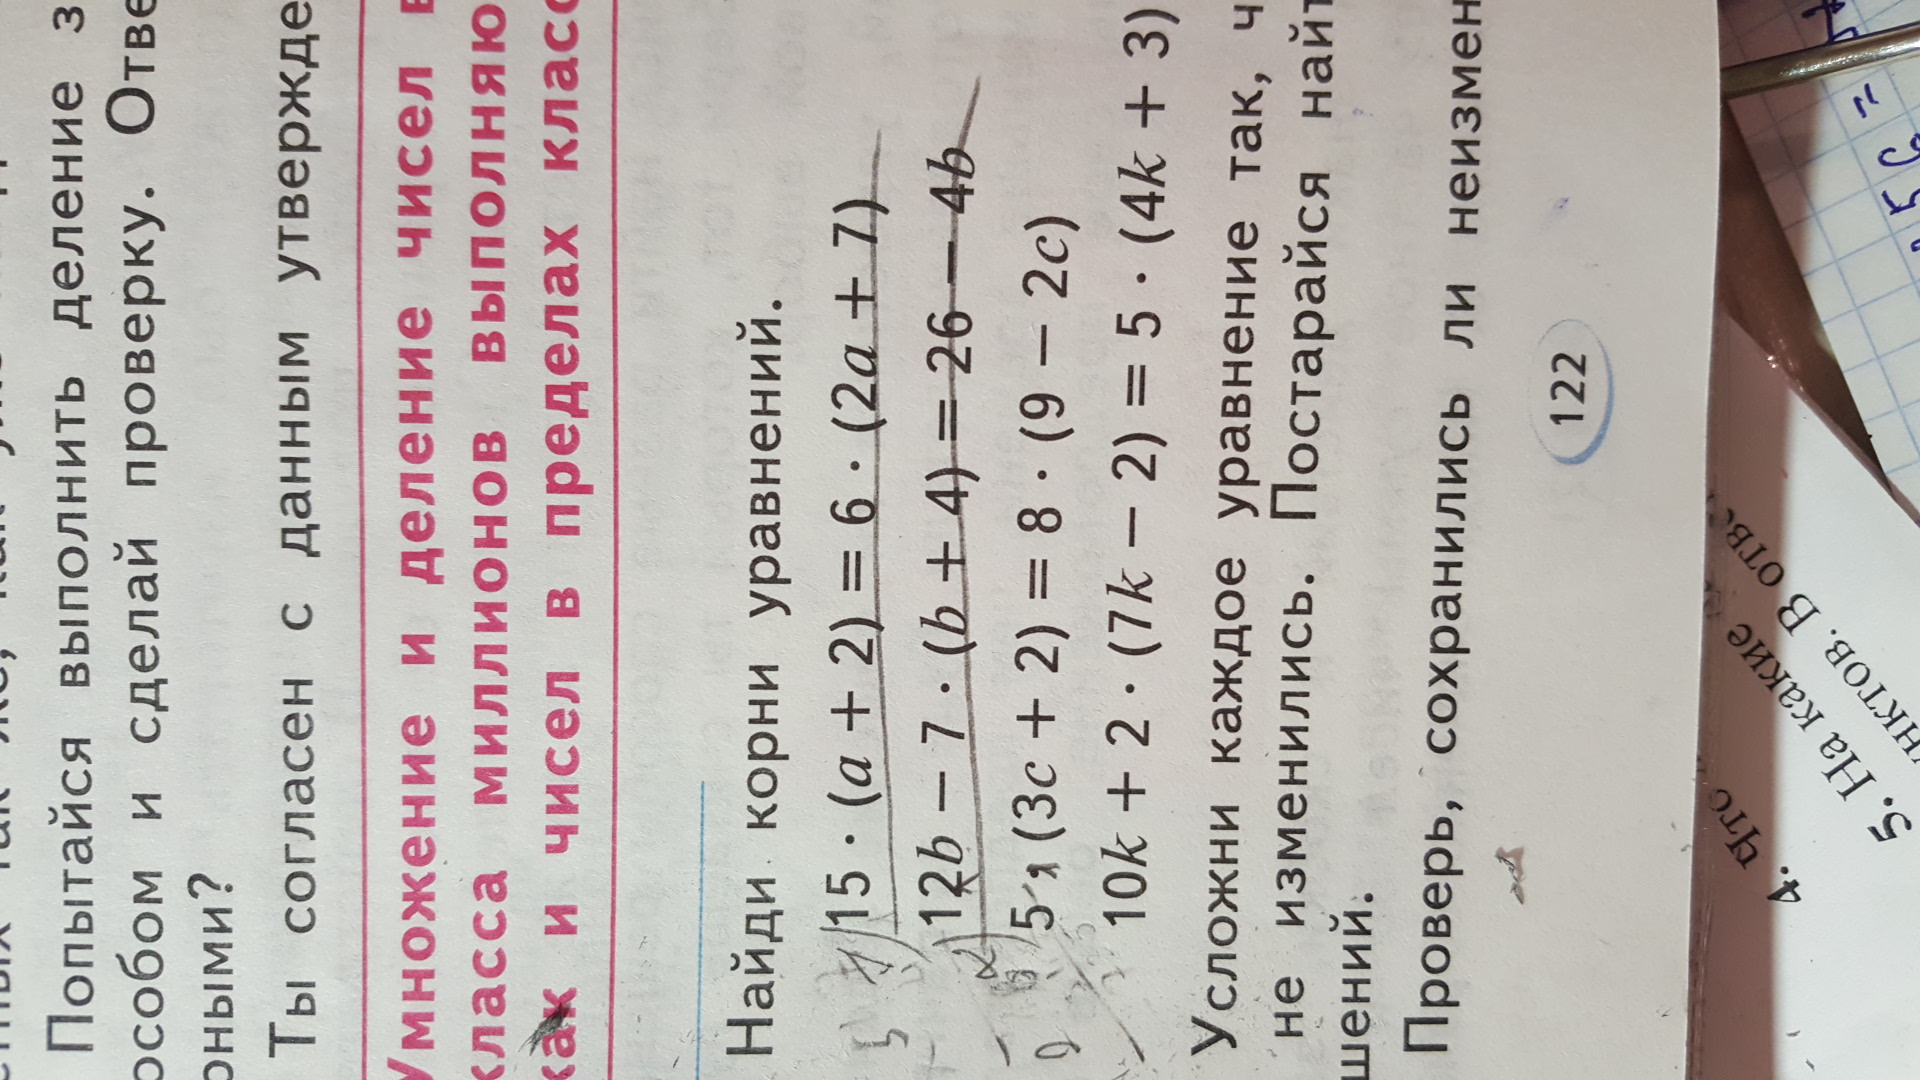 Попытайся выполнить деление
особом и сделай проверку. Отве
рными?
Ты согласен с данным утвержде
Умножение и деление чисел в
класса миллионов выполняю
как и чисел в пределах класс
Найди корни уравнений.
1) 15 · (a + 2) = 6 · (2a + 7)
2) 12b − 7 · (b + 4) = 26 − 4b
5 · (3c + 2) = 8 · (9 − 2c)
10k + 2 · (7k − 2) = 5 · (4k + 3)
Усложни каждое уравнение так, ч
не изменились. Постарайся найт
шений.
Проверь, сохранились ли неизмен
122
4. Что
5. На какие
нктов. В отв